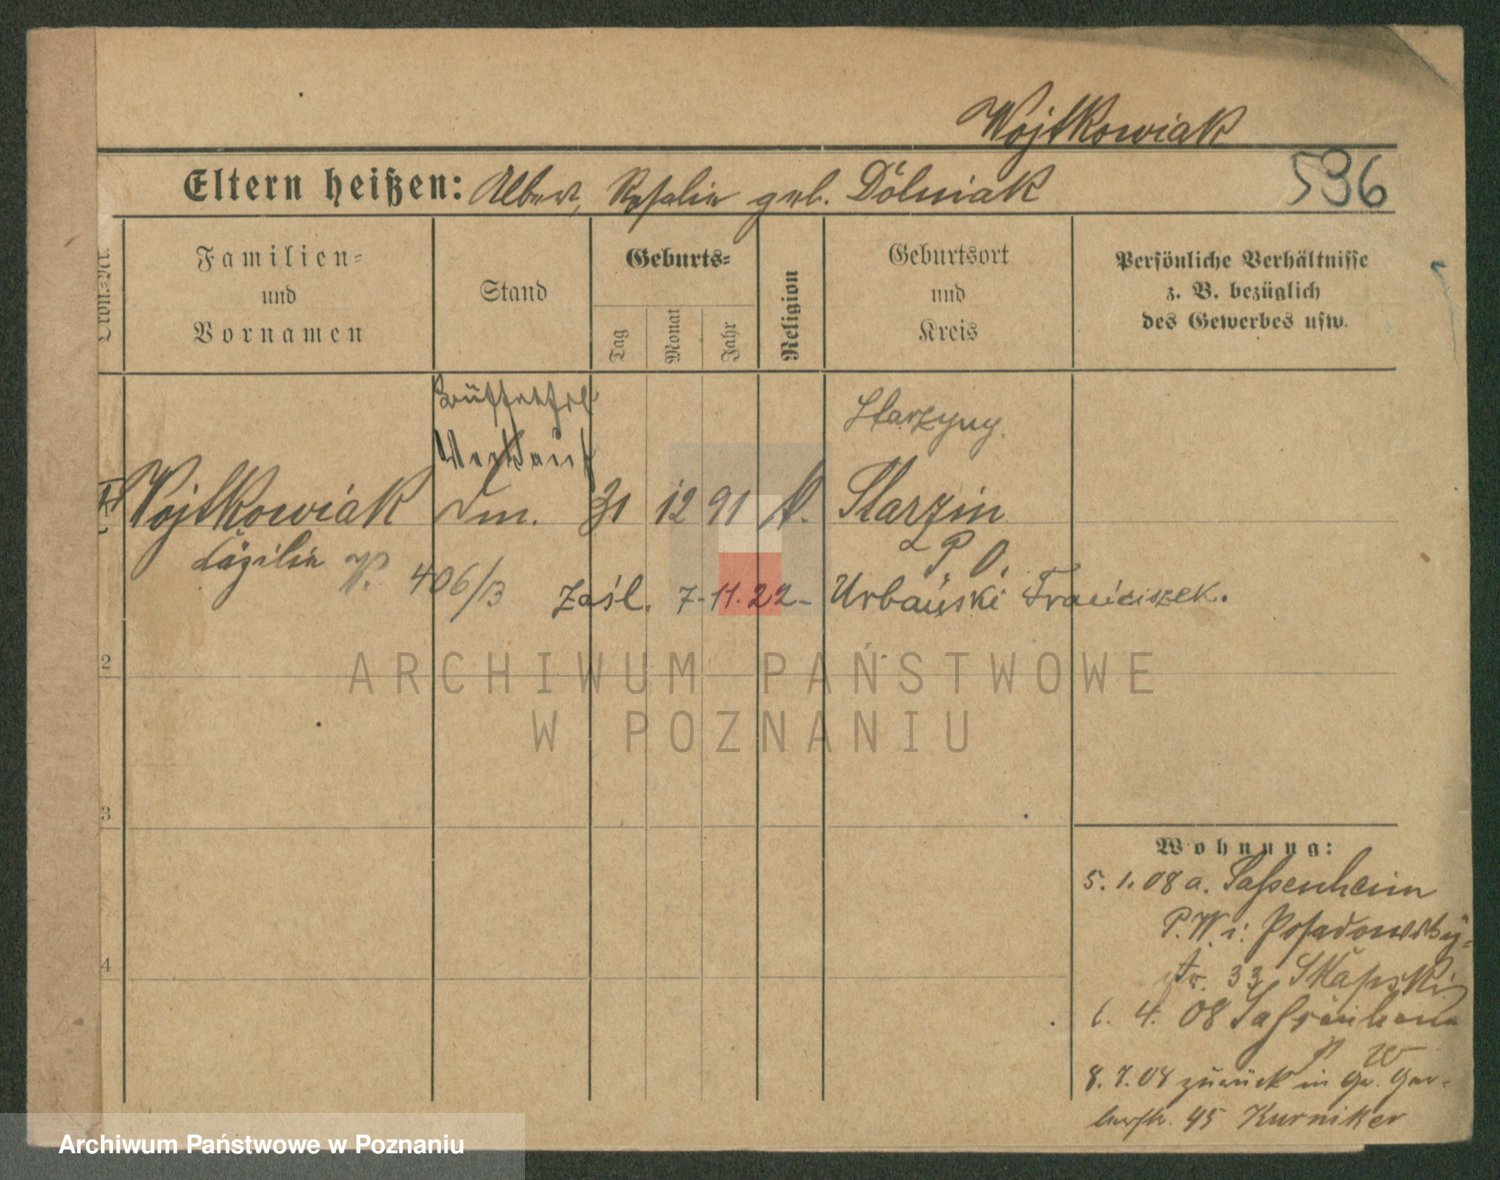 Wojtkowiak
Eltern heißen: Albert, Rosalie geb. Dölniak
536
Ordn.-Nr.
Familien-
und
Vornamen
Stand
Geburts-
Tag
Monat
Jahr
Religion
Geburtsort
und
Kreis
Persönliche Verhältnisse
z. B. bezüglich
des Gewerbes usw.
Büffetfrl
Starzyny
Wojtkowiak
31 12 91 k. Starzin
Cäzilie
406/13
P. O.
zaśl. 7-11-22- Urbański Franciszek.
2
3
4
Wohnung:
5. 1. 08 a. Sassenheim
P. W. i. Posadowsky-
str. 33, Skapski
1. 4. 08 Sassenheim
P W
8. 7. 08 zurück in Gr. Ger-
berstr. 45 Kurniker
ARCHIWUM PAŃSTWOWE
W POZNANIU
Archiwum Państwowe w Poznaniu